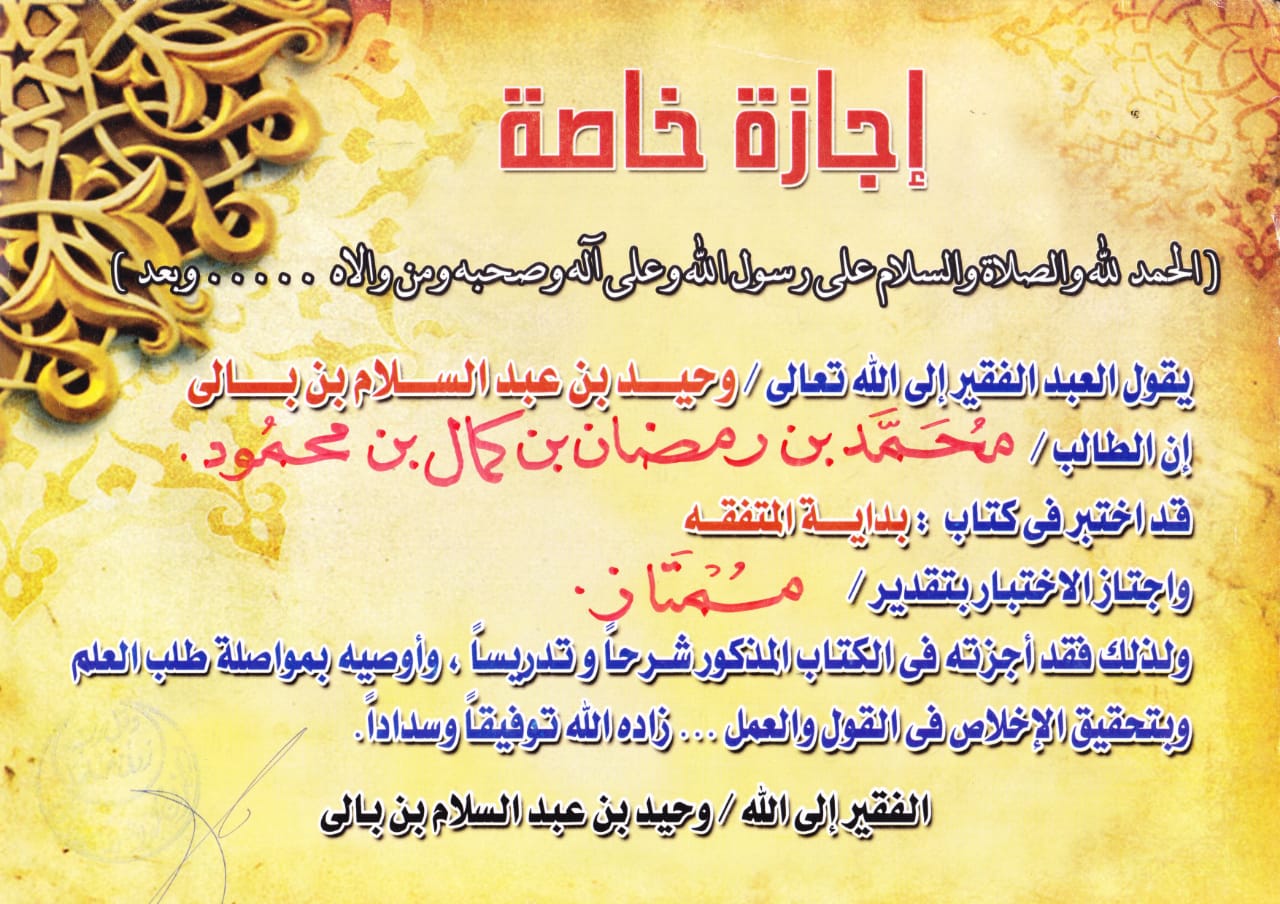 إجازة خاصة
( الحمد لله والصلاة والسلام على رسول الله وعلى آله وصحبه ومن والاه . . . . . وبعد )
يقول العبد الفقير إلى الله تعالى / وحيــد بن عبد الســلام بن بــالى
إن الطالب / مُحَمَّد بن رمضان بن كمال بن محمُود .
قد اختبر فى كتاب : بدايــة المتفقــه
واجتاز الاختبار بتقدير / مُمْتَاز.
ولذلك فقد أجزته فى الكتاب المذكور شرحاً و تدريساً ، وأوصيه بمواصلة طلب العلم
وبتحقيق الإخلاص فى القول والعمل ... زاده الله توفيقاً وسداداً.
الفقير إلى الله / وحيد بن عبد السلام بن بالى